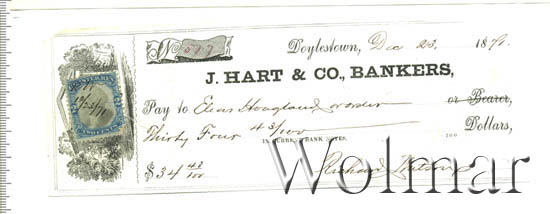 No 577
Doylestown, Dec 23, 187
J. HART & CO., BANKERS,
Pay to Elias Hoagland or order or Bearer,
Thirty Four 43/100 Dollars,
IN CURRENT BANK NOTES.
$34 43/100 Richard Watson
Wolmar